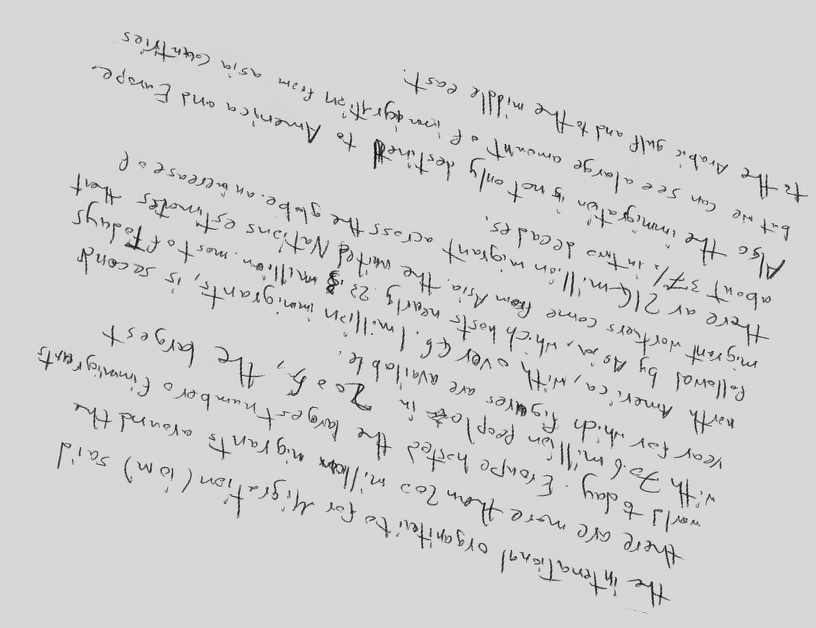 the intenational organiteito for Migration (iom) said
there are more than 200 million migrants around the
world today. Eroupe hosted the largest number of immigrants
with 70.6 million people in 2005, the largest
year for which figures are available.
north America, with over 46.1 million immigrants, is second
followed by Asia, which hosts nearly 23.3 million. most of todays
migrant workers come from Asia. the united Nations estimates thent
there ar 214 million migrant across the globe. an increase of
about 37% in two decades.
Also the immigration is not only destined to America and Europe
but we can see a large amount of immigration from asia countries
to the Arabic gulf and to the middle east.